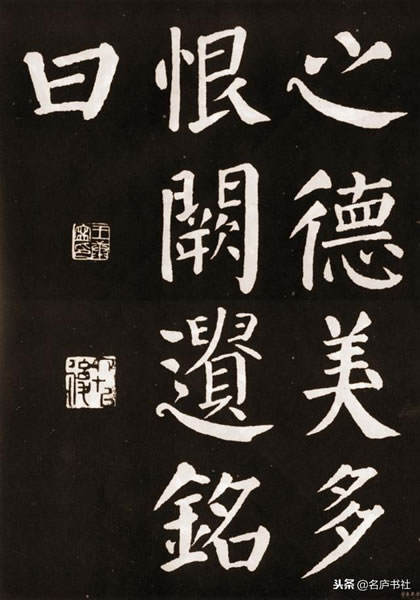 之德美多
恨闕遺銘
曰
头条@名庐书社